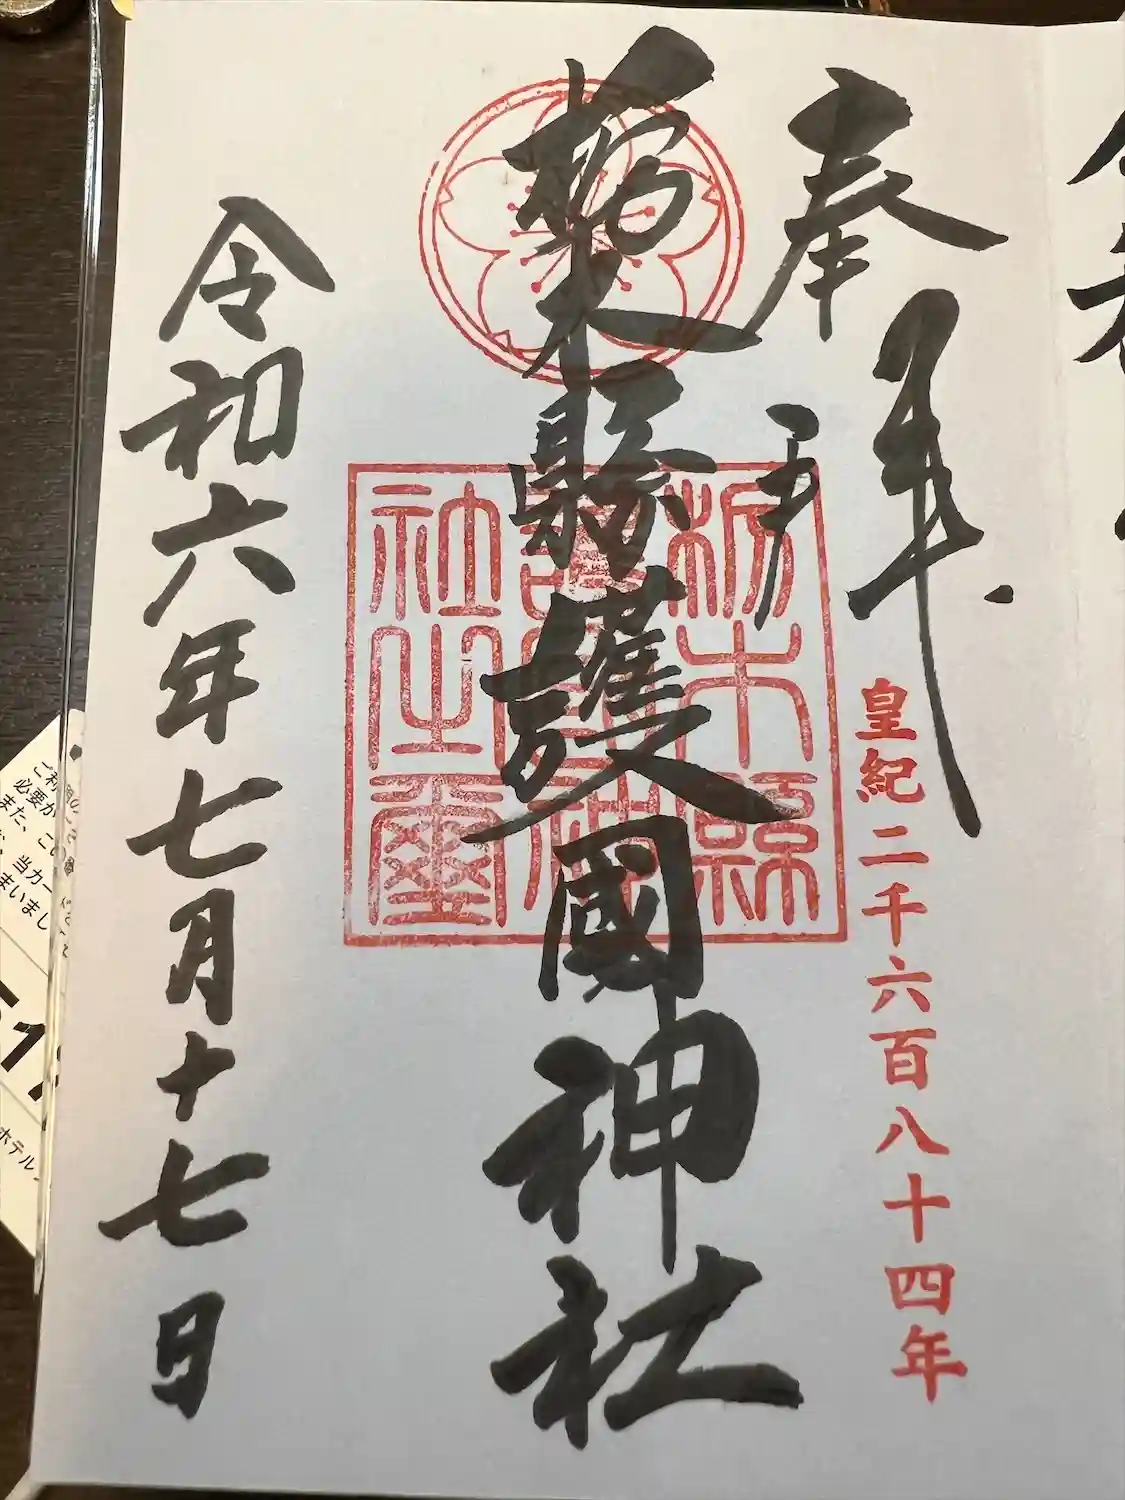 奉拝
皇紀二千六百八十四年
栃木縣護國神社
栃木縣
護國神
社之璽
令和六年七月十七日
ご利
必要か
また、こ
当カー
まいまし
ホテル